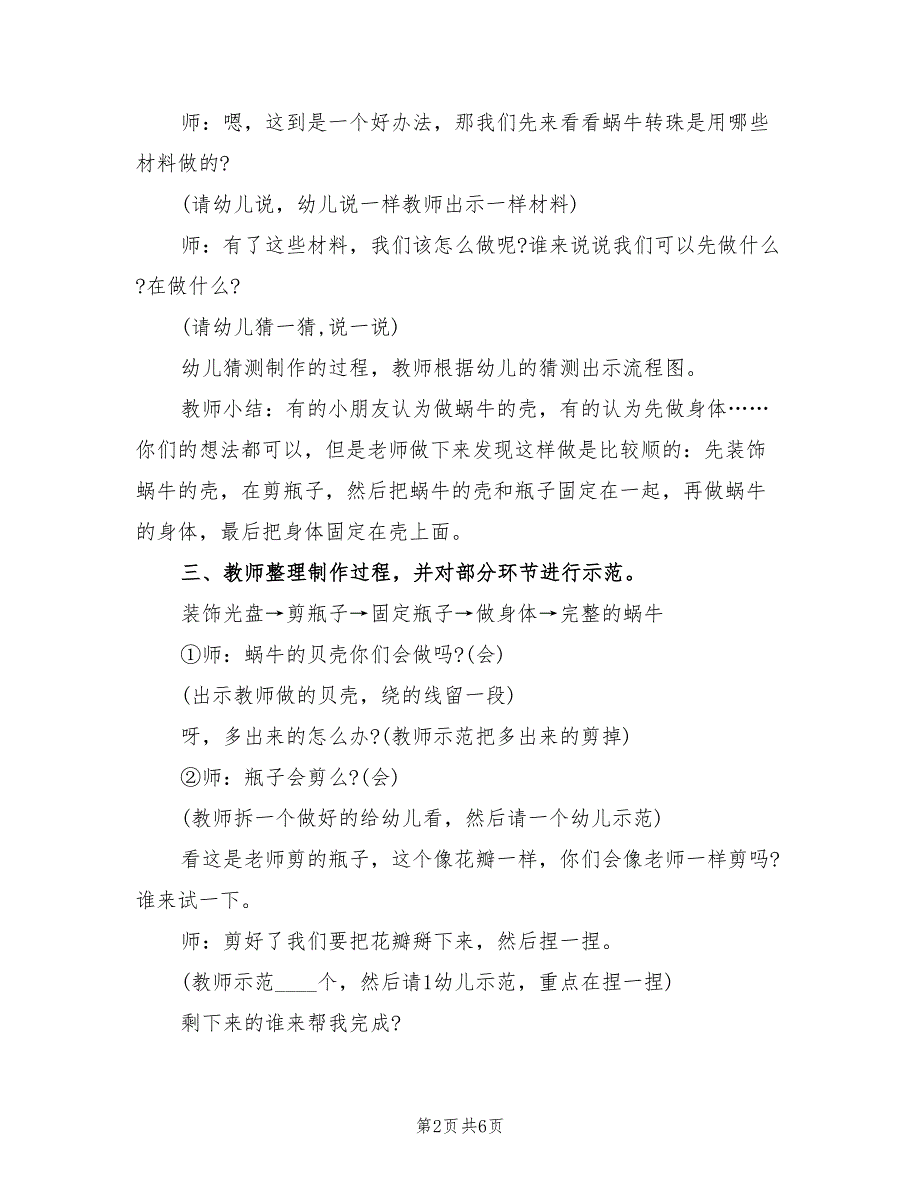 师：嗯，这到是一个好办法，那我们先来看看蜗牛转珠是用哪些
材料做的?
(请幼儿说，幼儿说一样教师出示一样材料)
师：有了这些材料，我们该怎么做呢?谁来说说我们可以先做什么
?在做什么?
(请幼儿猜一猜,说一说)
幼儿猜测制作的过程，教师根据幼儿的猜测出示流程图。
教师小结：有的小朋友认为做蜗牛的壳，有的认为先做身体……
你们的想法都可以，但是老师做下来发现这样做是比较顺的：先装饰
蜗牛的壳，在剪瓶子，然后把蜗牛的壳和瓶子固定在一起，再做蜗牛
的身体，最后把身体固定在壳上面。
三、教师整理制作过程，并对部分环节进行示范。
装饰光盘→剪瓶子→固定瓶子→做身体→完整的蜗牛
①师：蜗牛的贝壳你们会做吗?(会)
(出示教师做的贝壳，绕的线留一段)
呀，多出来的怎么办?(教师示范把多出来的剪掉)
②师：瓶子会剪么?(会)
(教师拆一个做好的给幼儿看，然后请一个幼儿示范)
看这是老师剪的瓶子，这个像花瓣一样，你们会像老师一样剪吗?
谁来试一下。
师：剪好了我们要把花瓣掰下来，然后捏一捏。
(教师示范____个，然后请1幼儿示范，重点在捏一捏)
剩下来的谁来帮我完成?
第2页共6页